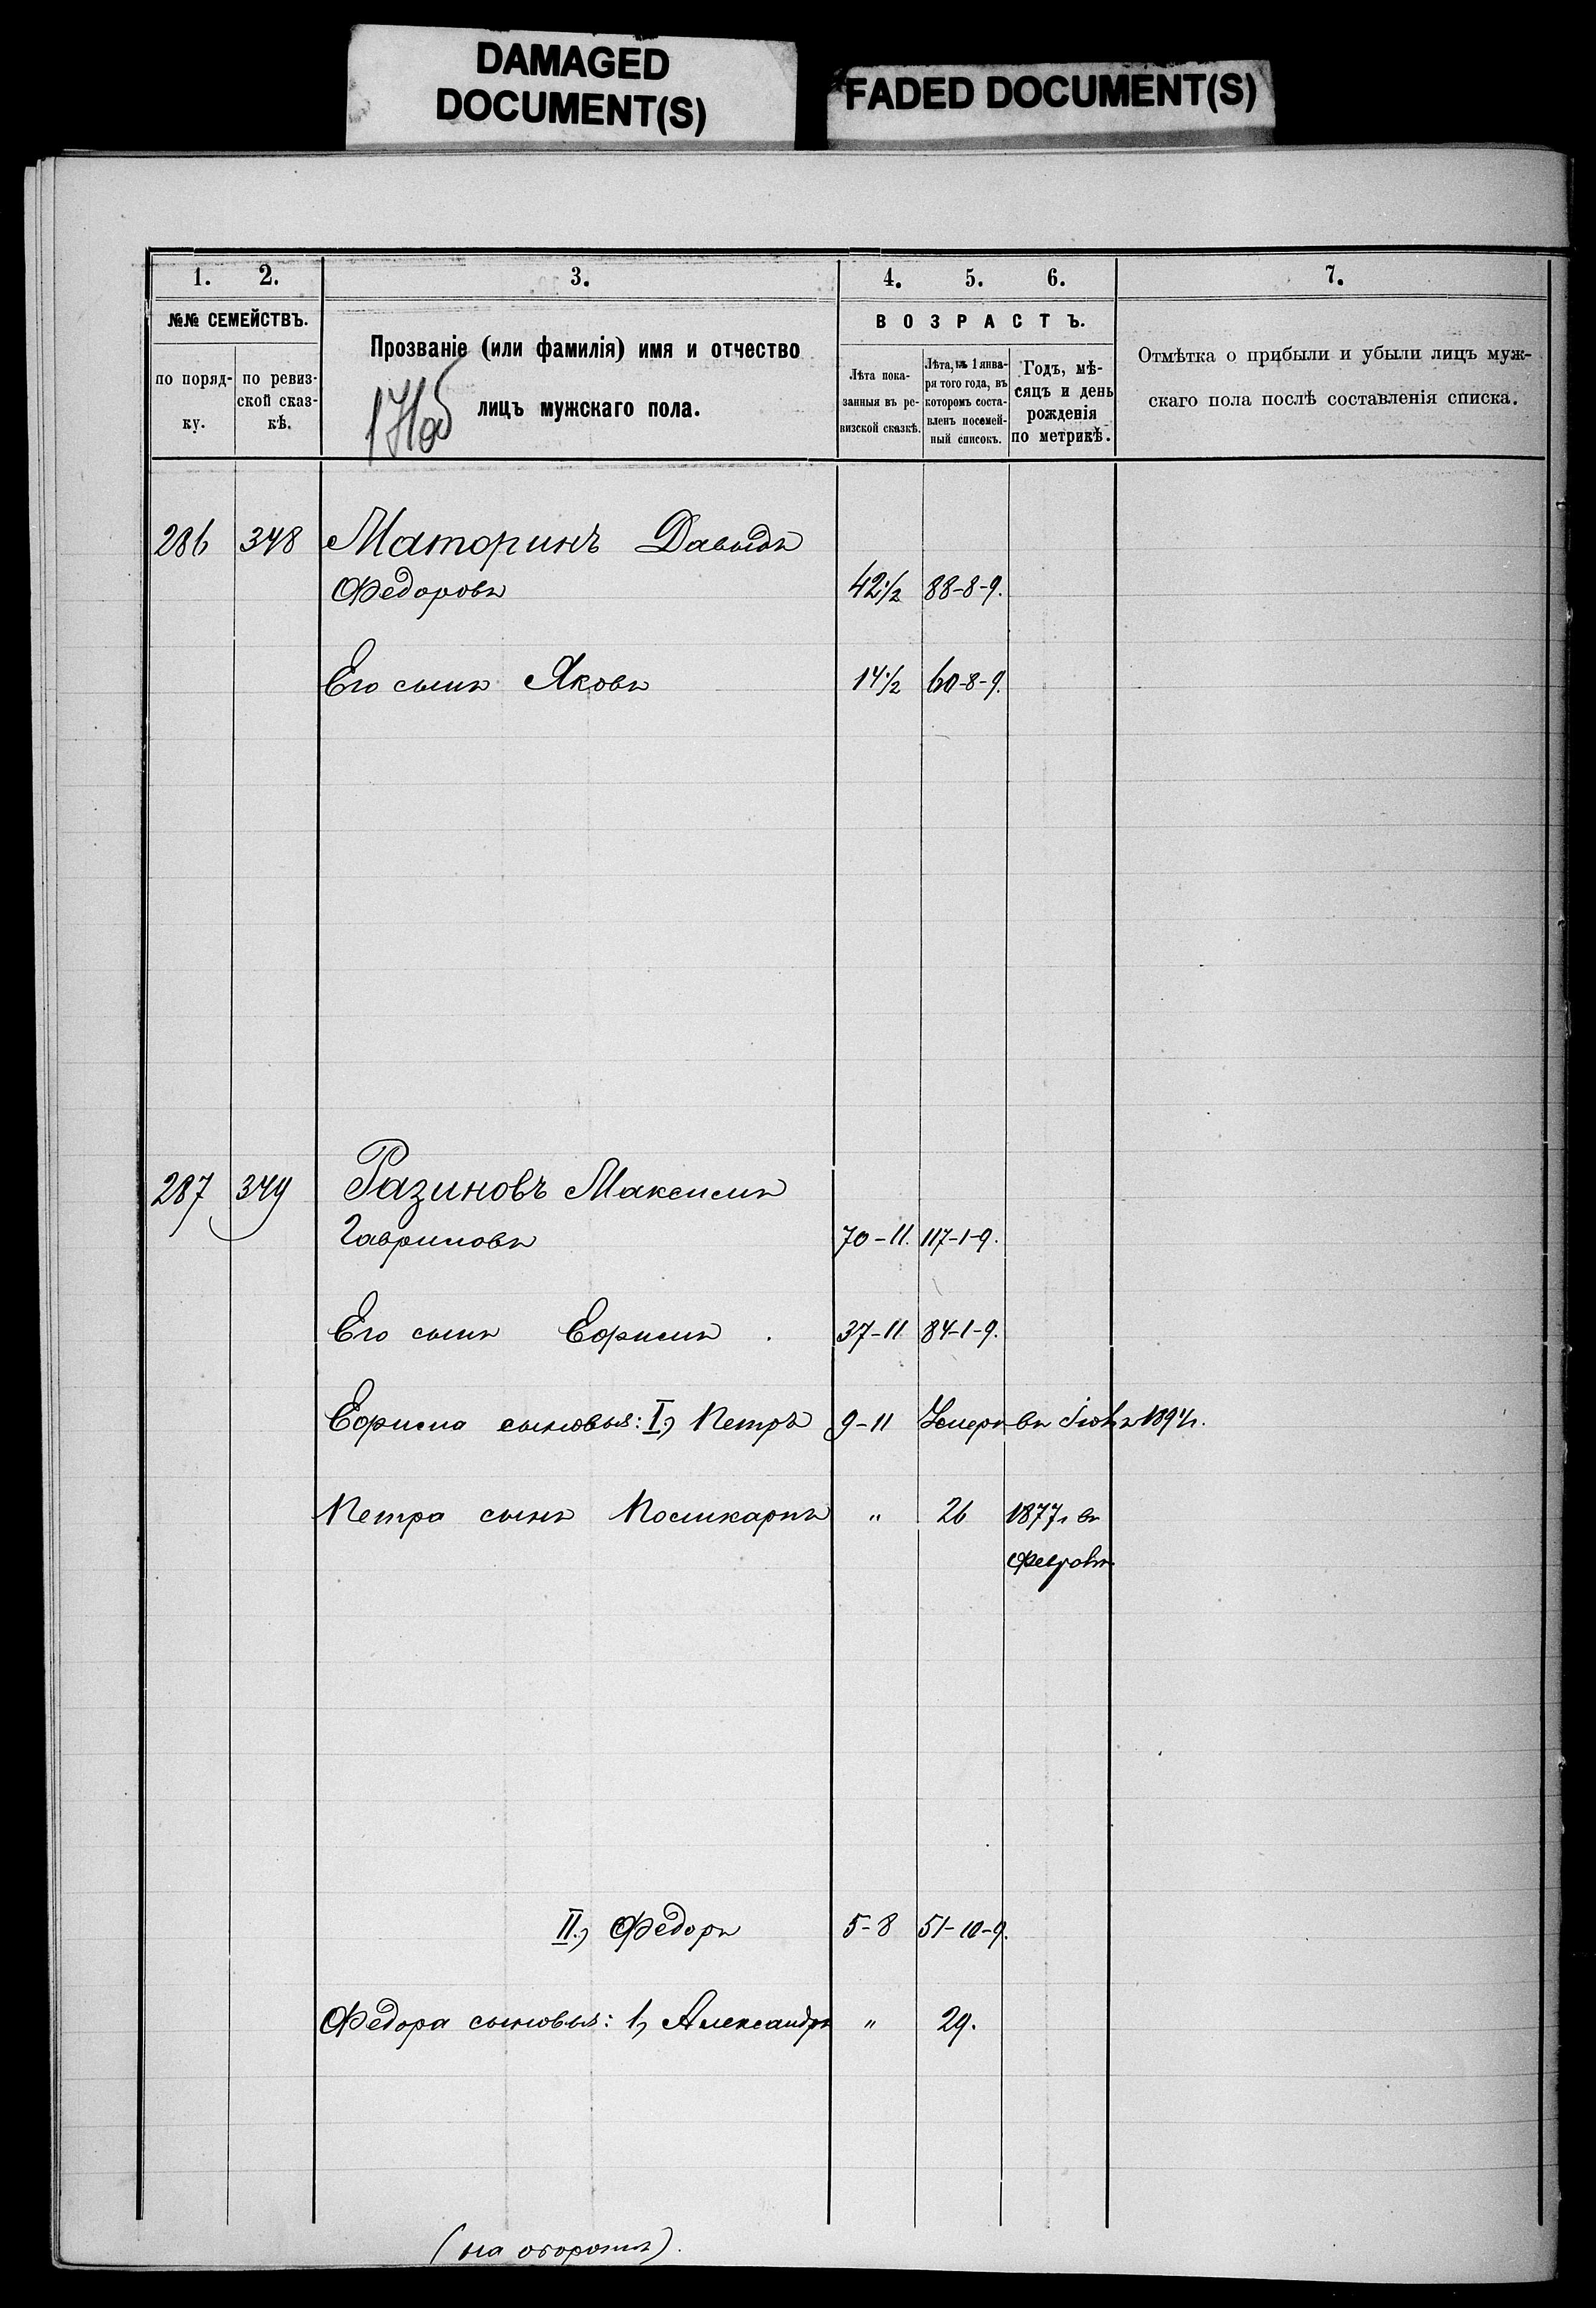 DAMAGED
DOCUMENT(S)
FADED DOCUMENT(S)
1. 2. 3. 4. 5. 6. 7.
№№ СЕМЕЙСТВЪ.
по поряд-
ку.
по ревиз-
ской сказ-
кѣ.
Прозваніе (или фамилія) имя и отчество
лицъ мужскаго пола.
ВОЗРАСТЪ.
Лѣта пока-
занныя въ ре-
визской сказкѣ.
Лѣта, къ 1 янва-
ря того года, въ
которомъ соста-
вленъ посемей-
ный списокъ.
Годъ, мѣ-
сяцъ и день
рожденія
по метрикѣ.
Отмѣтка о прибыли и убыли лицъ муж-
скаго пола послѣ составленія списка.
286 348 Маторинъ Давыдъ
Федоровъ 42 1/2 88-8-9.
Его сынъ Яковъ 14 1/2 60-8-9.
287 349 Разиновъ Максимъ
Гавриловъ 70-11. 117-1-9.
Его сынъ Ефимъ 37-11 84-1-9.
Ефима сыновья: I, Петръ 9-11 Умеръ въ 1894 г.
Петра сынъ Поликарпъ " 26 1877 г. въ
Феврал.
II, Федоръ 5-8 51-10-9.
Федора сыновья: 1, Александръ " 29.
(на оборотѣ).